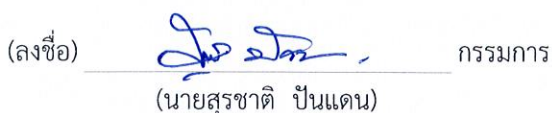 (ลงชื่อ) กรรมการ
(นายสุรชาติ ปันแดน)